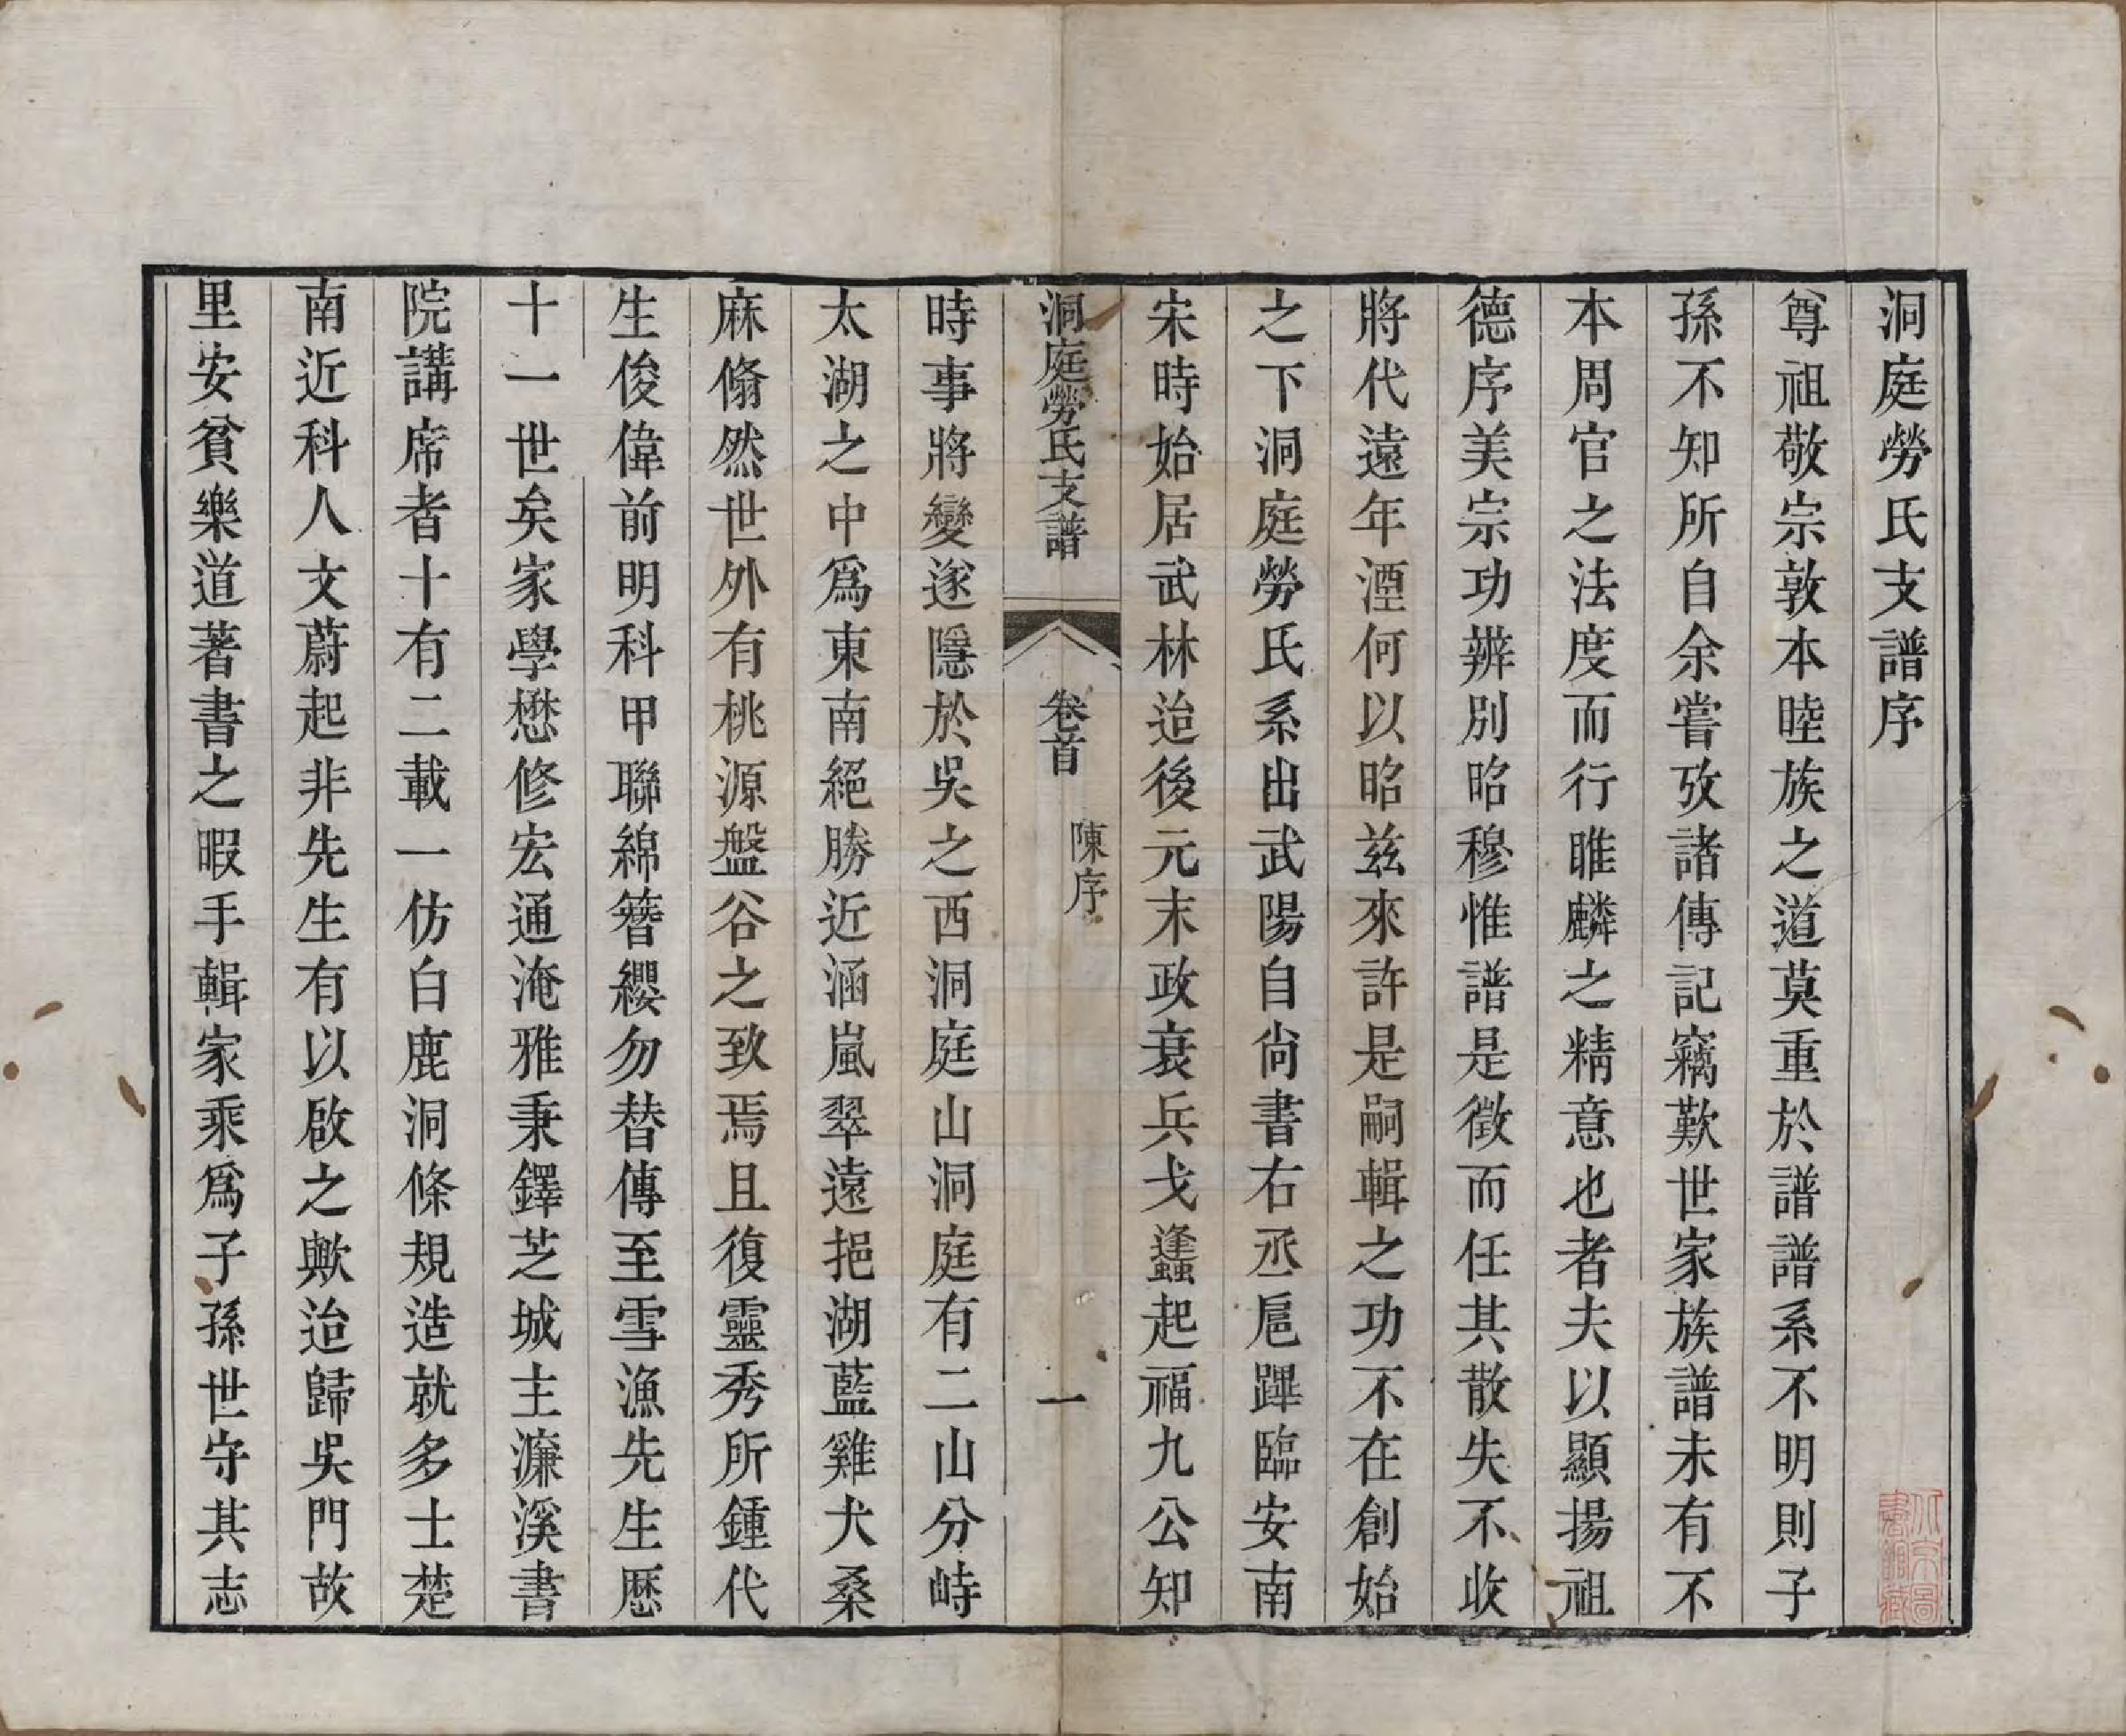 洞庭勞氏支譜序
尊祖敬宗敦本睦族之道莫重於譜譜系不明則子
孫不知所自余嘗攷諸傳記竊歎世家族譜未有不
本周官之法度而行睢麟之精意也者夫以顯揚祖
德序美宗功辨別昭穆惟譜是徵而任其散失不收
將代遠年湮何以昭兹來許是嗣輯之功不在創始
之下洞庭勞氏系出武陽自尙書右丞扈蹕臨安南
宋時始居武林迨後元末政衰兵戈蠭起福九公知
洞庭勞氏支譜
卷首
陳序
一
時事將變遂隱於吳之西洞庭山洞庭有二山分峙
太湖之中爲東南絕勝近涵嵐翠遠挹湖藍雞犬桑
麻翛然世外有桃源盤谷之致焉且復靈秀所鍾代
生俊偉前明科甲聯綿簪纓勿替傳至雪漁先生厯
十一世矣家學懋修宏通淹雅秉鐸芝城主濂溪書
院講席者十有二載一仿白鹿洞條規造就多士楚
南近科人文蔚起非先生有以啟之歟迨歸吳門故
里安貧樂道著書之暇手輯家乘爲子孫世守其志
北京圖
書館藏